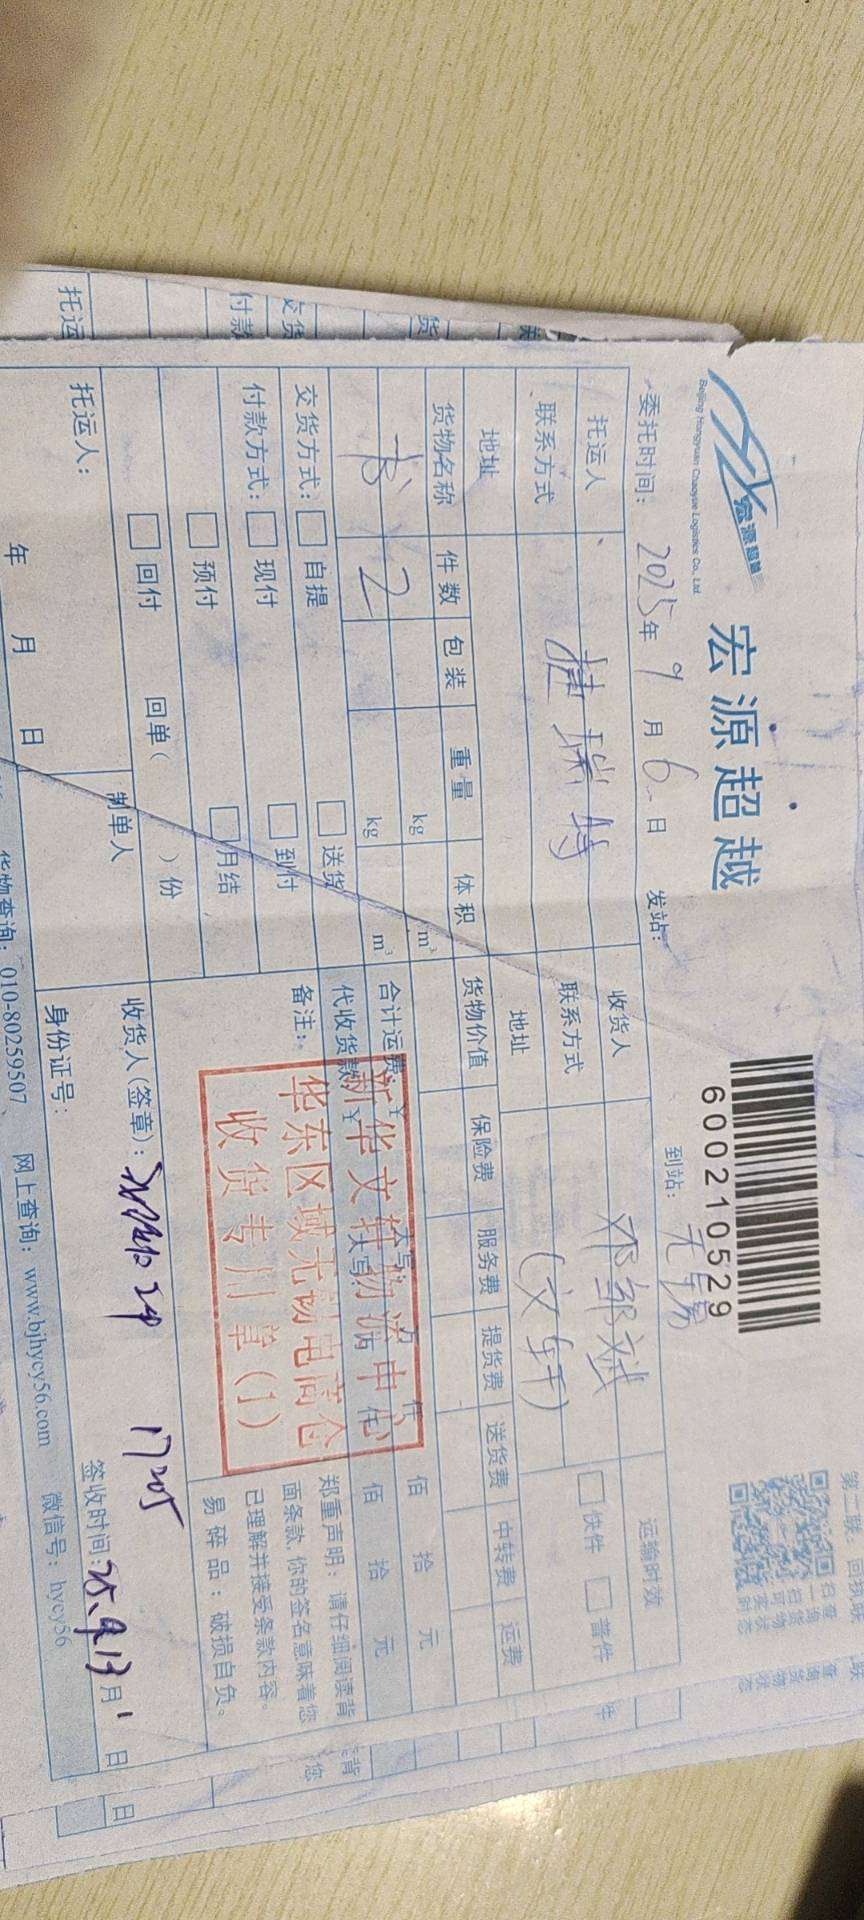 宏源超越
Beijing Hongyuan Chaoyue Logistics Co., Ltd.
宏源超越
600210529
第二联：回执联
委托时间：2025年9月6日 发站： 到站：无锡
托运人 桂瑞特 收货人 邓邹斌 运输时效
联系方式 联系方式 (文轩) 快件 普件
地址 地址
货物名称 件数 包装 重量 体积 货物价值 保险费 服务费 提货费 送货费 中转费 运费
书 2 kg m³
kg m³
合计运费：¥ 大写： 仟 佰 拾 元
代收货款：¥ 大写： 仟 佰 拾 元
交货方式： 自提 送货
付款方式： 现付 到付
预付 月结
回付 回单（ ）份
备注：
新华文轩物流中心
华东区域无锡电商仓
收货专用章(1)
郑重声明：请仔细阅读背
面条款，你的签名意味着您
已理解并接受条款内容。
易碎品：破损自负。
托运人： 制单人 收货人(签章)： 17205
年 月 日 身份证号： 签收时间：25.9.13 月 日
货物查询：010-80259507、 网上查询：www.bjhycy56.com 微信号：hycy56